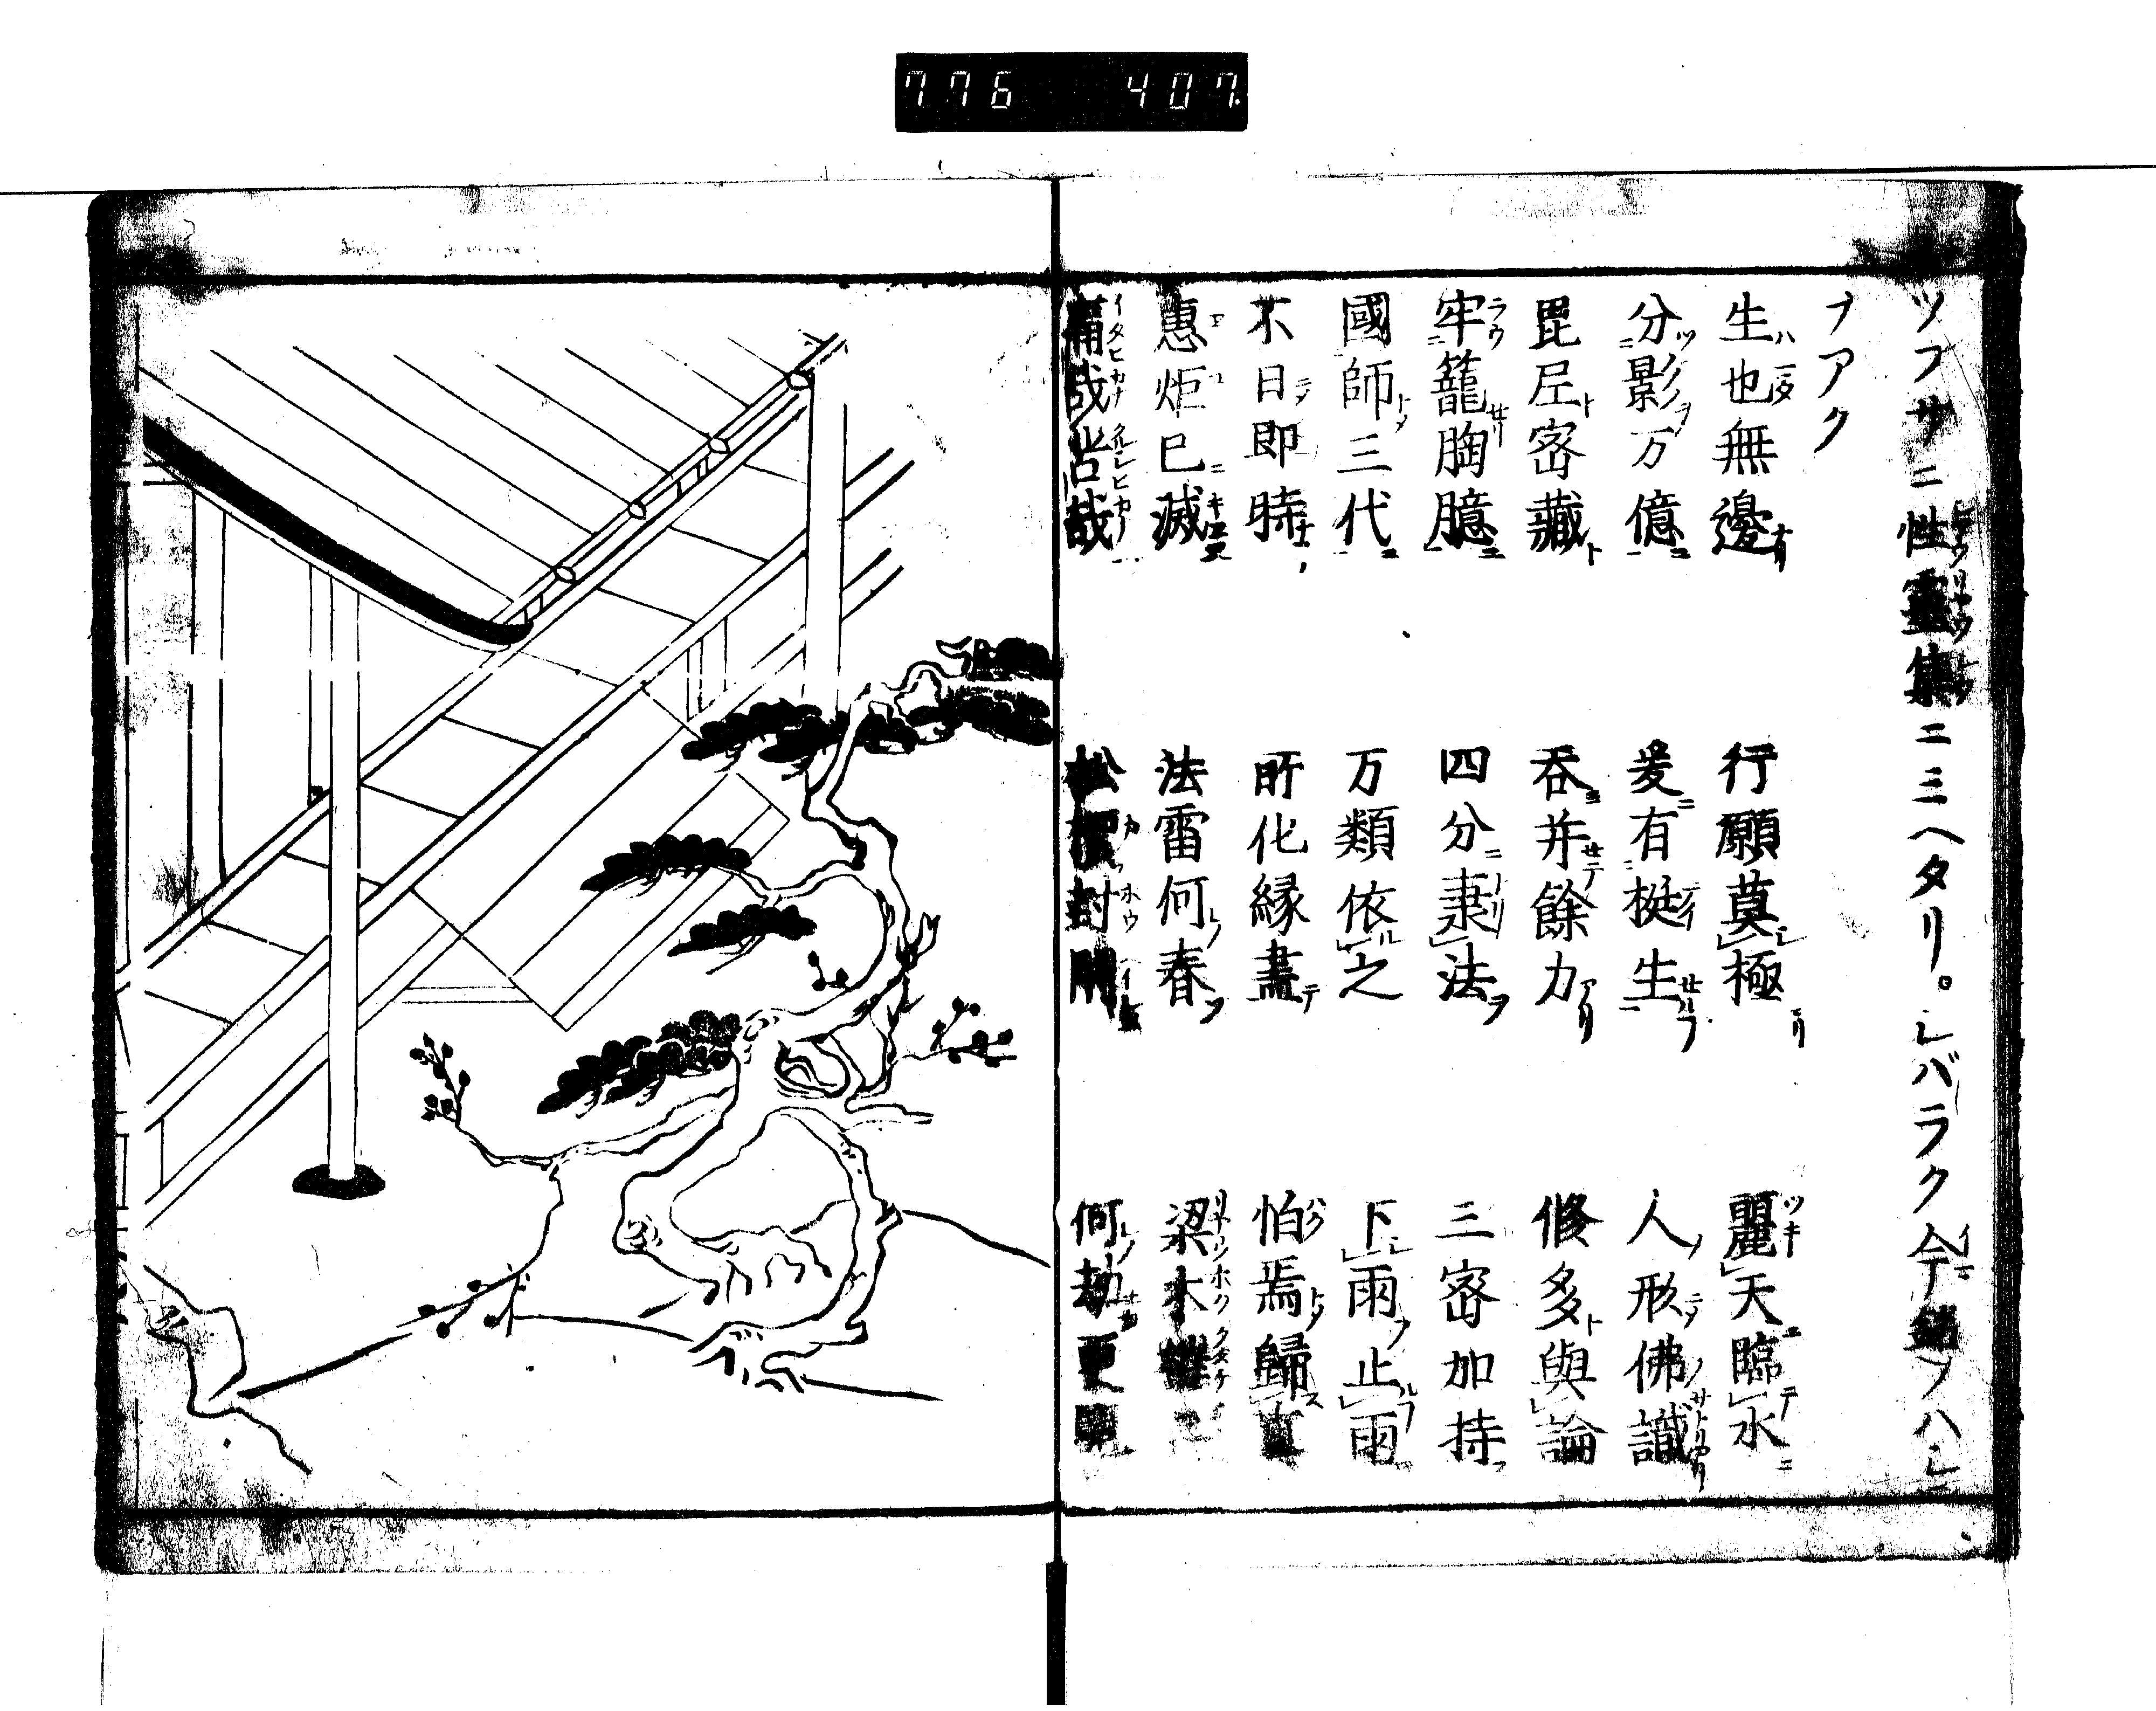 776 407
ツフサニ性靈集ニミヘタリ。シバラク今銘ヲハシ
ナアク
生也無邊 行願莫極 麗天臨水
分影万億 爰有挺生 人形佛識
毘尼密藏 吞并餘力 修多與論
牢籠胸臆 四分秉法 三密加持
國師三代 万類依之 下雨止雨
不日即時 所化縁盡 怕焉歸真
惠炬已滅 法雷何春 梁木摧
痛哉苦哉 松檟封閇 何劫更開